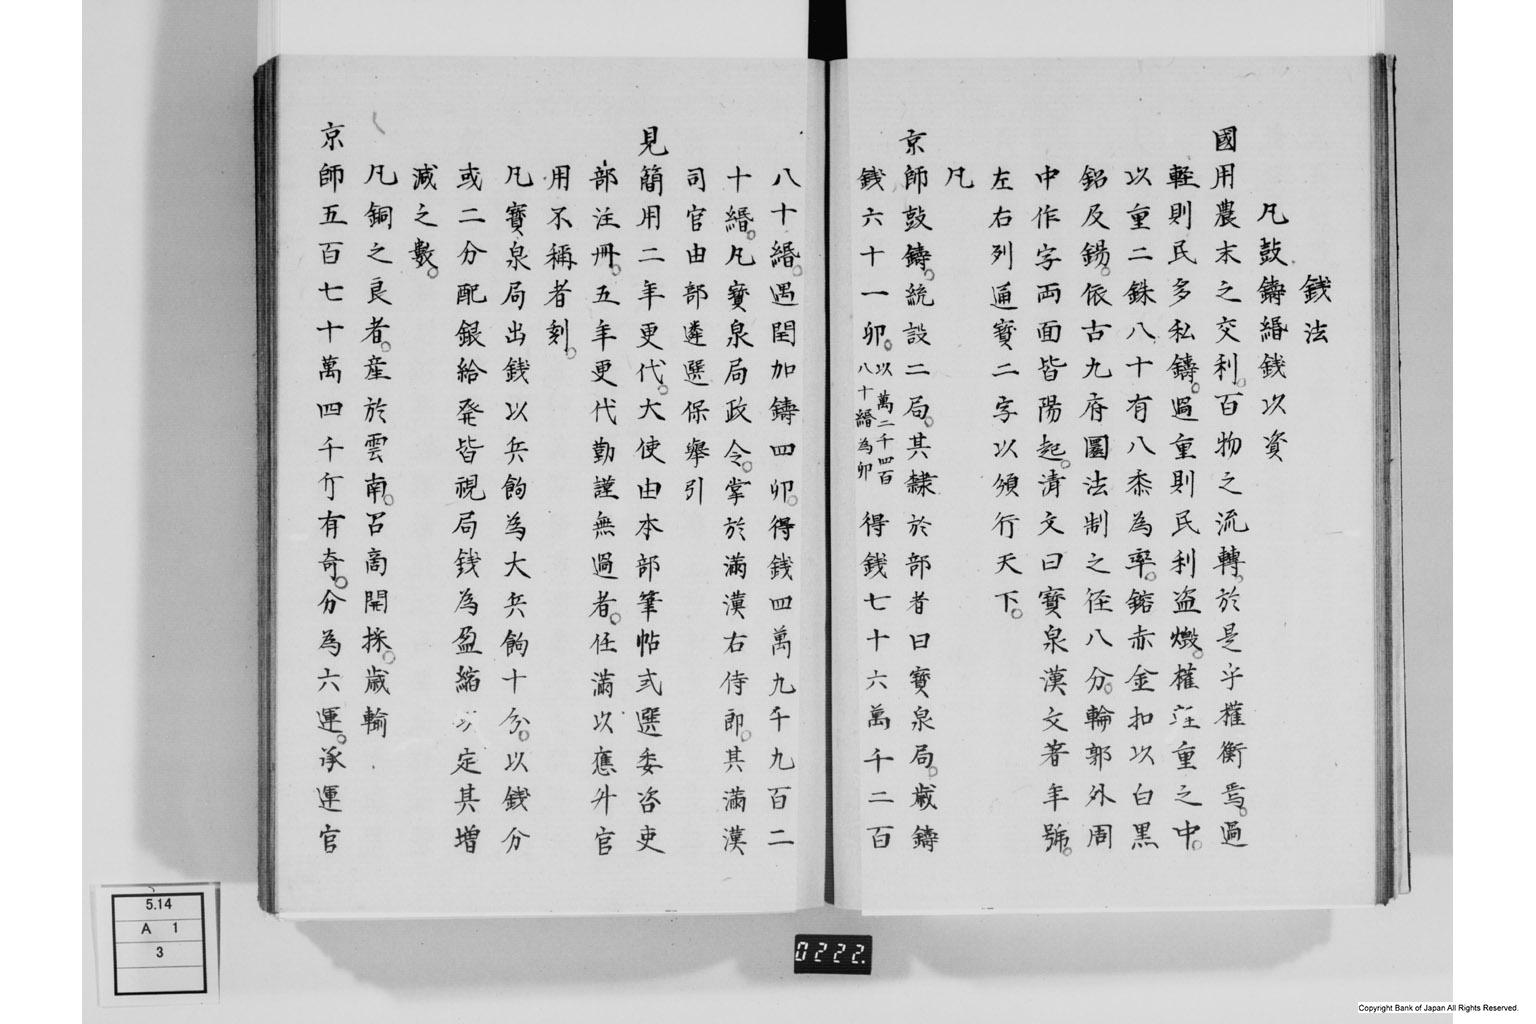 錢法
凡鼓鑄緡錢以資
國用農末之交利。百物之流轉。於是乎權衡焉。過
輕則民多私鑄。過重則民利盜燬。權輕重之中。
以重二銖八十有八黍為率。鎔赤金扣以白黑
鉛及錫。依古九府圜法制之徑八分。輪郭外周
中作字両面皆陽起。清文曰寶泉漢文著年號。
左右列通寶二字以頒行天下。
凡
京師鼓鑄。統設二局。其隸於部者曰寶泉局。歲鑄
錢六十一卯。以萬二千四百八十緡為卯得錢七十六萬千二百
八十緡。遇閏加鑄四卯。得錢四萬九千九百二
十緡。凡寶泉局政令。掌於滿漢右侍郎。其滿漢
司官由部遴選保舉引
見簡用二年更代。大使由本部筆帖式選委咨吏
部注冊。五年更代勤謹無過者。任滿以應升官
用不稱者刻。
凡寶泉局出錢以兵餉為大兵餉十分。以錢分
或二分配銀給發皆視局錢為盈縮以定其增
減之數。
凡銅之良者。產於雲南。召商開採。歲輸
京師五百七十萬四千斤有奇。分為六運。承運官
5.14
A 1
3
0222.
Copyright Bank of Japan All Rights Reserved.